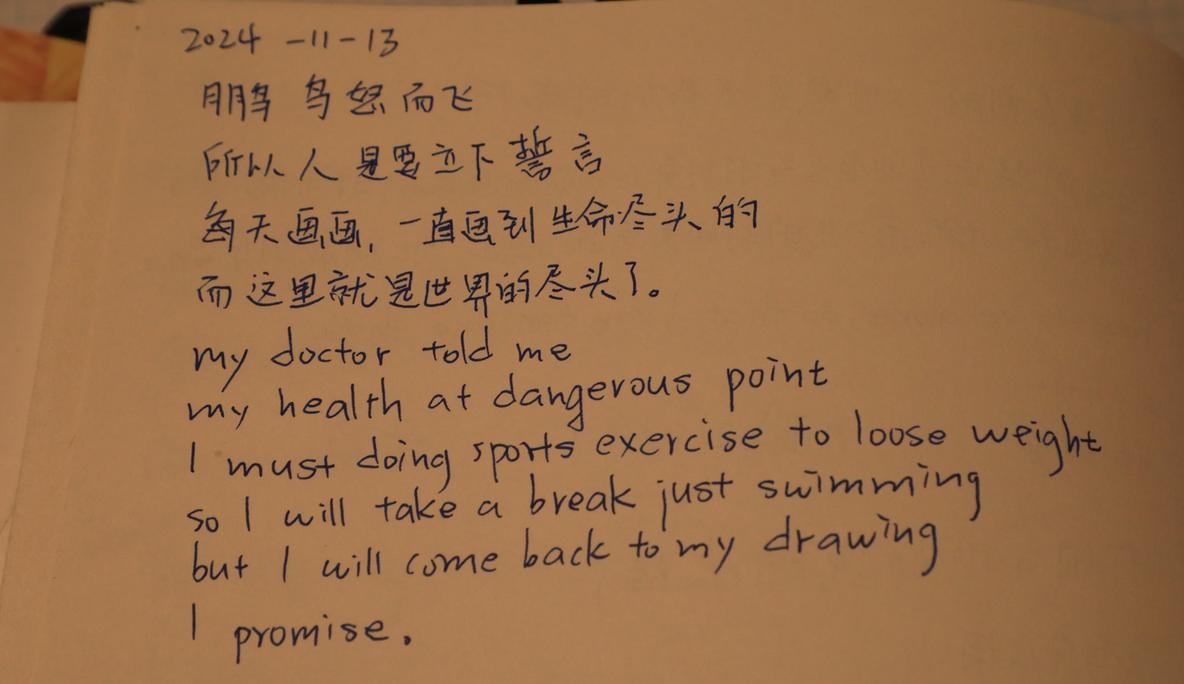 2024-11-13
鹏鸟怒而飞
所以人是要立下誓言
每天画画,一直画到生命尽头的
而这里就是世界的尽头了。
my doctor told me
my health at dangerous point
I must doing sports exercise to loose weight
so I will take a break just swimming
but I will come back to my drawing
I promise.